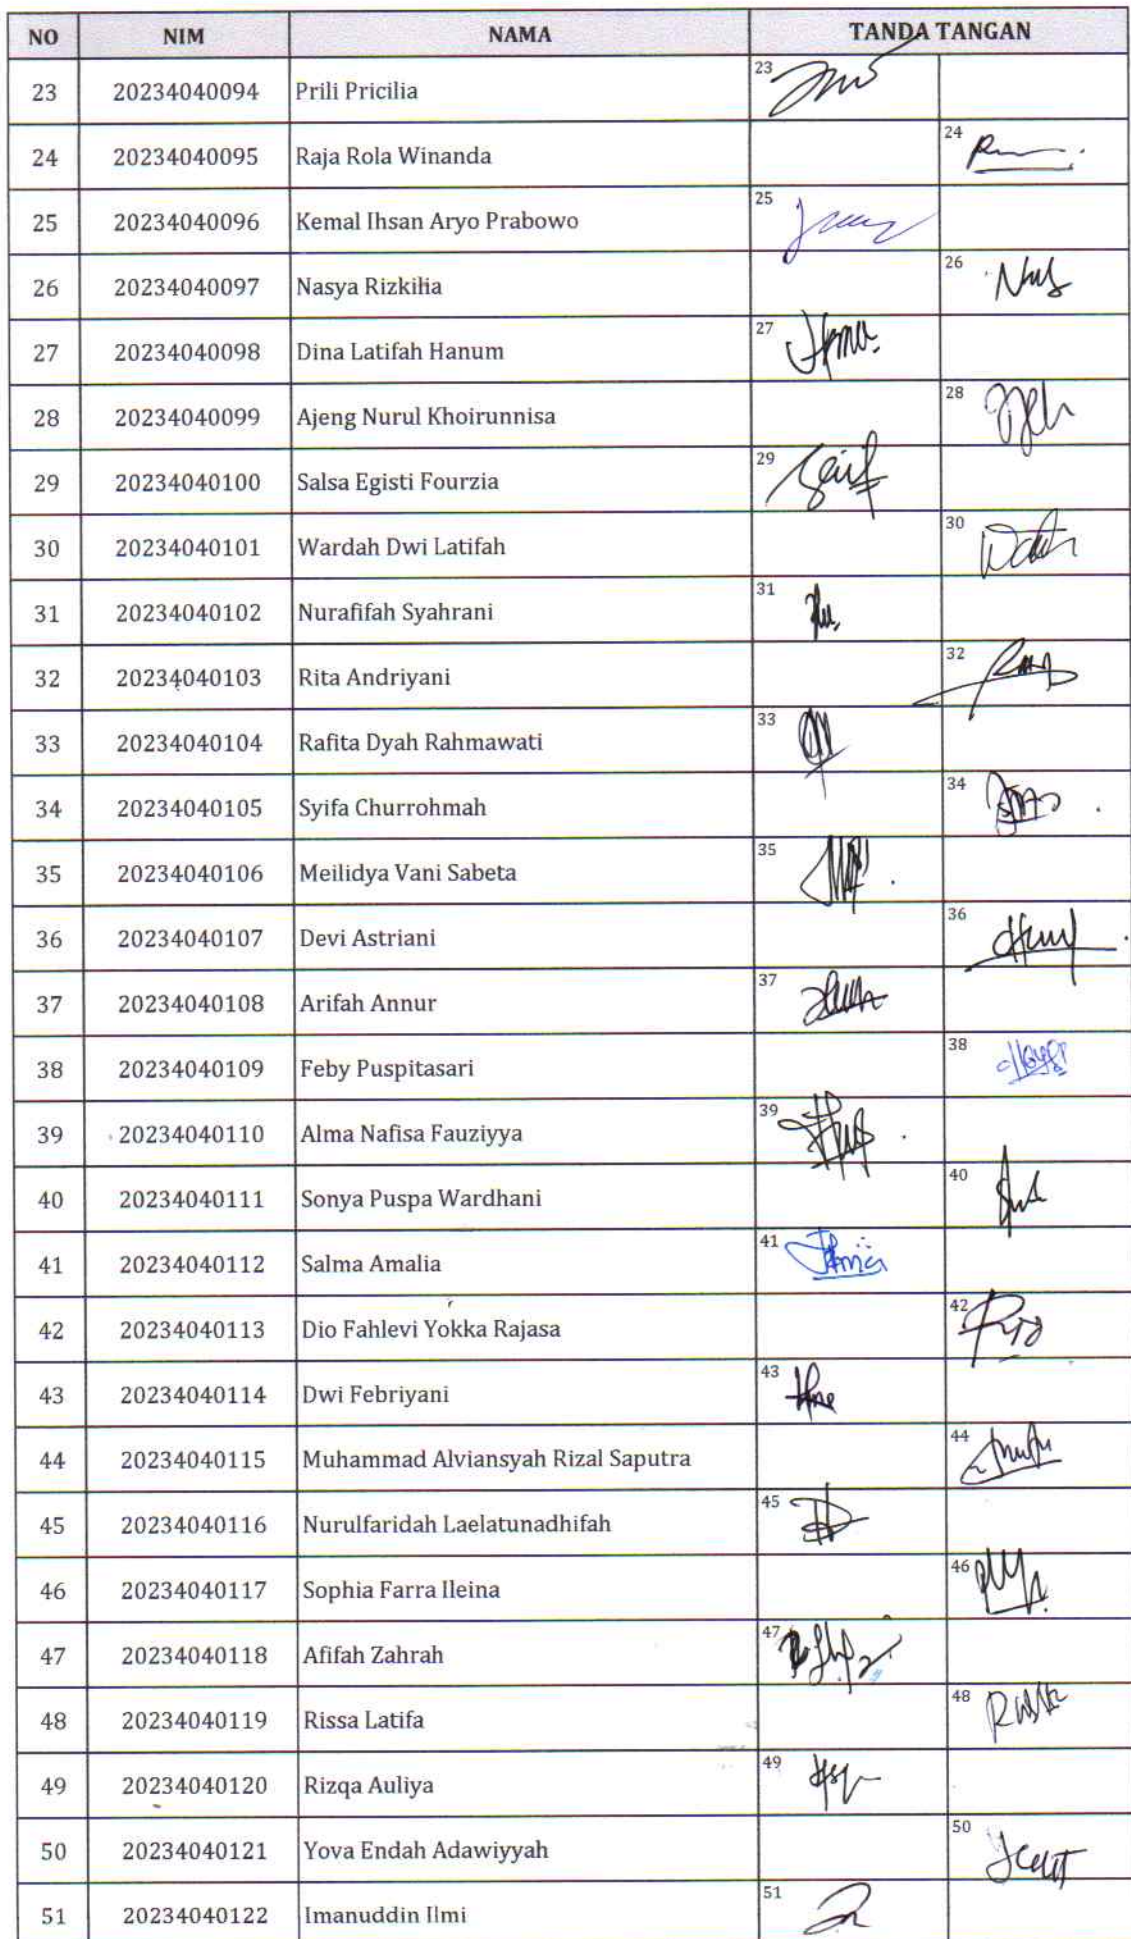 NO NIM NAMA TANDA TANGAN
23 20234040094 Prili Pricilia 23
24 20234040095 Raja Rola Winanda 24
25 20234040096 Kemal Ihsan Aryo Prabowo 25
26 20234040097 Nasya Rizkilia 26
27 20234040098 Dina Latifah Hanum 27
28 20234040099 Ajeng Nurul Khoirunnisa 28
29 20234040100 Salsa Egisti Fourzia 29
30 20234040101 Wardah Dwi Latifah 30
31 20234040102 Nurafifah Syahrani 31
32 20234040103 Rita Andriyani 32
33 20234040104 Rafita Dyah Rahmawati 33
34 20234040105 Syifa Churrohmah 34
35 20234040106 Meilidya Vani Sabeta 35
36 20234040107 Devi Astriani 36
37 20234040108 Arifah Annur 37
38 20234040109 Feby Puspitasari 38
39 20234040110 Alma Nafisa Fauziyya 39
40 20234040111 Sonya Puspa Wardhani 40
41 20234040112 Salma Amalia 41
42 20234040113 Dio Fahlevi Yokka Rajasa 42
43 20234040114 Dwi Febriyani 43
44 20234040115 Muhammad Alviansyah Rizal Saputra 44
45 20234040116 Nurulfaridah Laelatunadhifah 45
46 20234040117 Sophia Farra Ileina 46
47 20234040118 Afifah Zahrah 47
48 20234040119 Rissa Latifa 48
49 20234040120 Rizqa Auliya 49
50 20234040121 Yova Endah Adawiyyah 50
51 20234040122 Imanuddin Ilmi 51